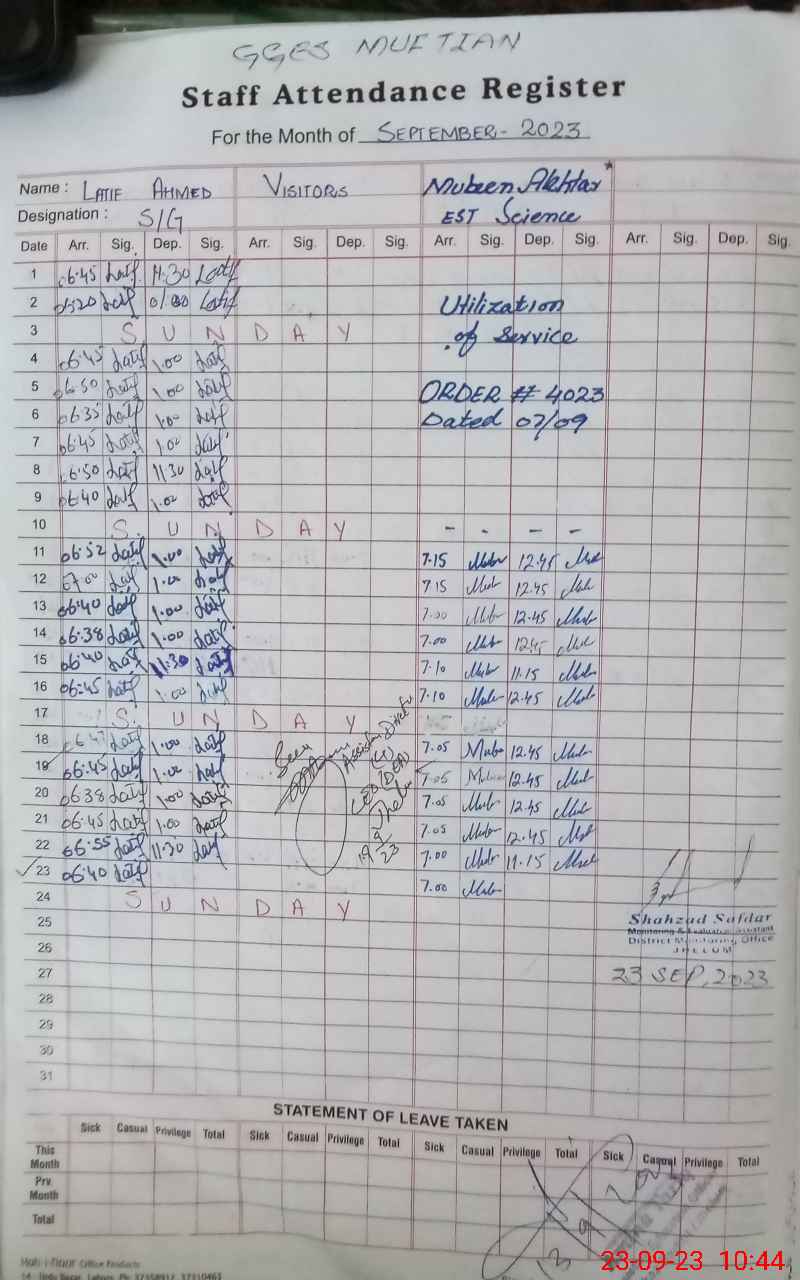 GGES MUFTIAN
Staff Attendance Register
For the Month of SEPTEMBER - 2023
Name : LATIF AHMED VISITORS Mubeen Akhtar*
Designation : S/G EST Science
Date Arr. Sig. Dep. Sig. Arr. Sig. Dep. Sig. Arr. Sig. Dep. Sig. Arr. Sig. Dep. Sig.
1 06.45 Latif 11.30 Latif
2 Latif Latif Utilization
3 S U N D A Y of Service
4 06.45 Latif 1.00 Latif
5 06.50 Latif 1.00 Latif ORDER # 4023
6 06.35 Latif 1.00 Latif Dated 07/09
7 06.45 Latif 1.00 Latif
8 06.50 Latif 11.30 Latif
9 06.40 Latif 1.00 Latif
10 S U N D A Y - - - -
11 06.52 Latif 1.00 Latif 7.15 12.45
12 07.00 Latif 1.00 Latif 7.15 12.45
13 06.40 Latif 1.00 Latif 7.00 12.45
14 06.38 Latif 1.00 Latif 7.00 12.45
15 06.40 Latif 11.30 Latif 7.10 11.15
16 06.45 Latif 1.00 Latif 7.10 12.45
17 S U N D A Y
18 Latif 1.00 Latif Seen Assistant Director 7.05 12.45
19 06.45 Latif 1.00 Latif 7.05 12.45
20 06.38 Latif 1.00 Latif 7.05 12.45
21 06.45 Latif 1.00 Latif 7.05 12.45
22 06.55 Latif 11.30 Latif 19/9/23 7.00 11.15
23 06.40 Latif 7.00
24 S U N D A Y
25
Shahzad Safdar
Monitoring & Evaluation Assistant
District Monitoring Office
JHELUM
26
27 23 SEP, 2023
28
29
30
31
STATEMENT OF LEAVE TAKEN
Sick Casual Privilege Total Sick Casual Privilege Total Sick Casual Privilege Total Sick Casual Privilege Total
This Month
Prv. Month
Total
Office Products
23-09-23 10:44